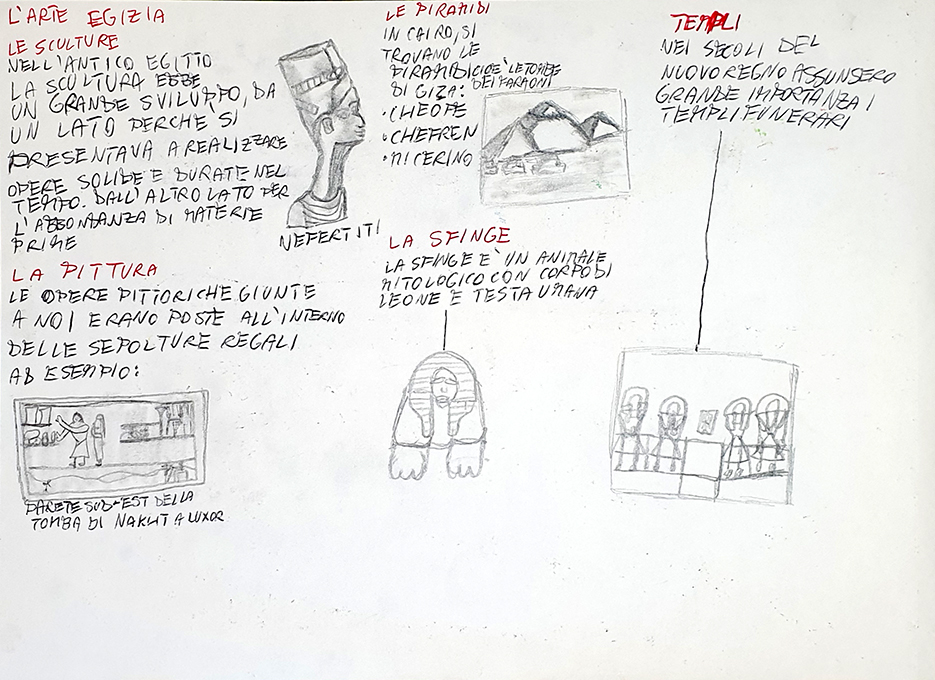 L'ARTE EGIZIA
LE SCULTURE
NELL'ANTICO EGITTO
LA SCULTURA EBBE
UN GRANDE SVILUPPO, DA
UN LATO PERCHE SI
PRESENTAVA A REALIZZARE
OPERE SOLIDE E DURATE NEL
TEMPO. DALL'ALTRO LATO PER
L'ABBONDANZA DI MATERIE
PRIME
NEFERTITI
LA PITTURA
LE OPERE PITTORICHE GIUNTE
A NOI ERANO POSTE ALL'INTERNO
DELLE SEPOLTURE REGALI
AD ESEMPIO:
PARETE SUD-EST DELLA
TOMBA DI NAKHT A LUXOR
LE PIRAMIDI
IN CAIRO, SI
TROVANO LE
PIRAMIDI CIOÈ LE TOMBE
DI GIZA: DEI FARAONI
• CHEOPE
• CHEFREN
• MICERINO
LA SFINGE
LA SFINGE E' UN ANIMALE
MITOLOGICO CON CORPO DI
LEONE E TESTA UMANA
TEMPLI
NEI SECOLI DEL
NUOVO REGNO ASSUNSERO
GRANDE IMPORTANZA I
TEMPLI FUNERARI